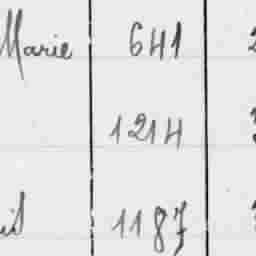 Marie 641
1214
1187